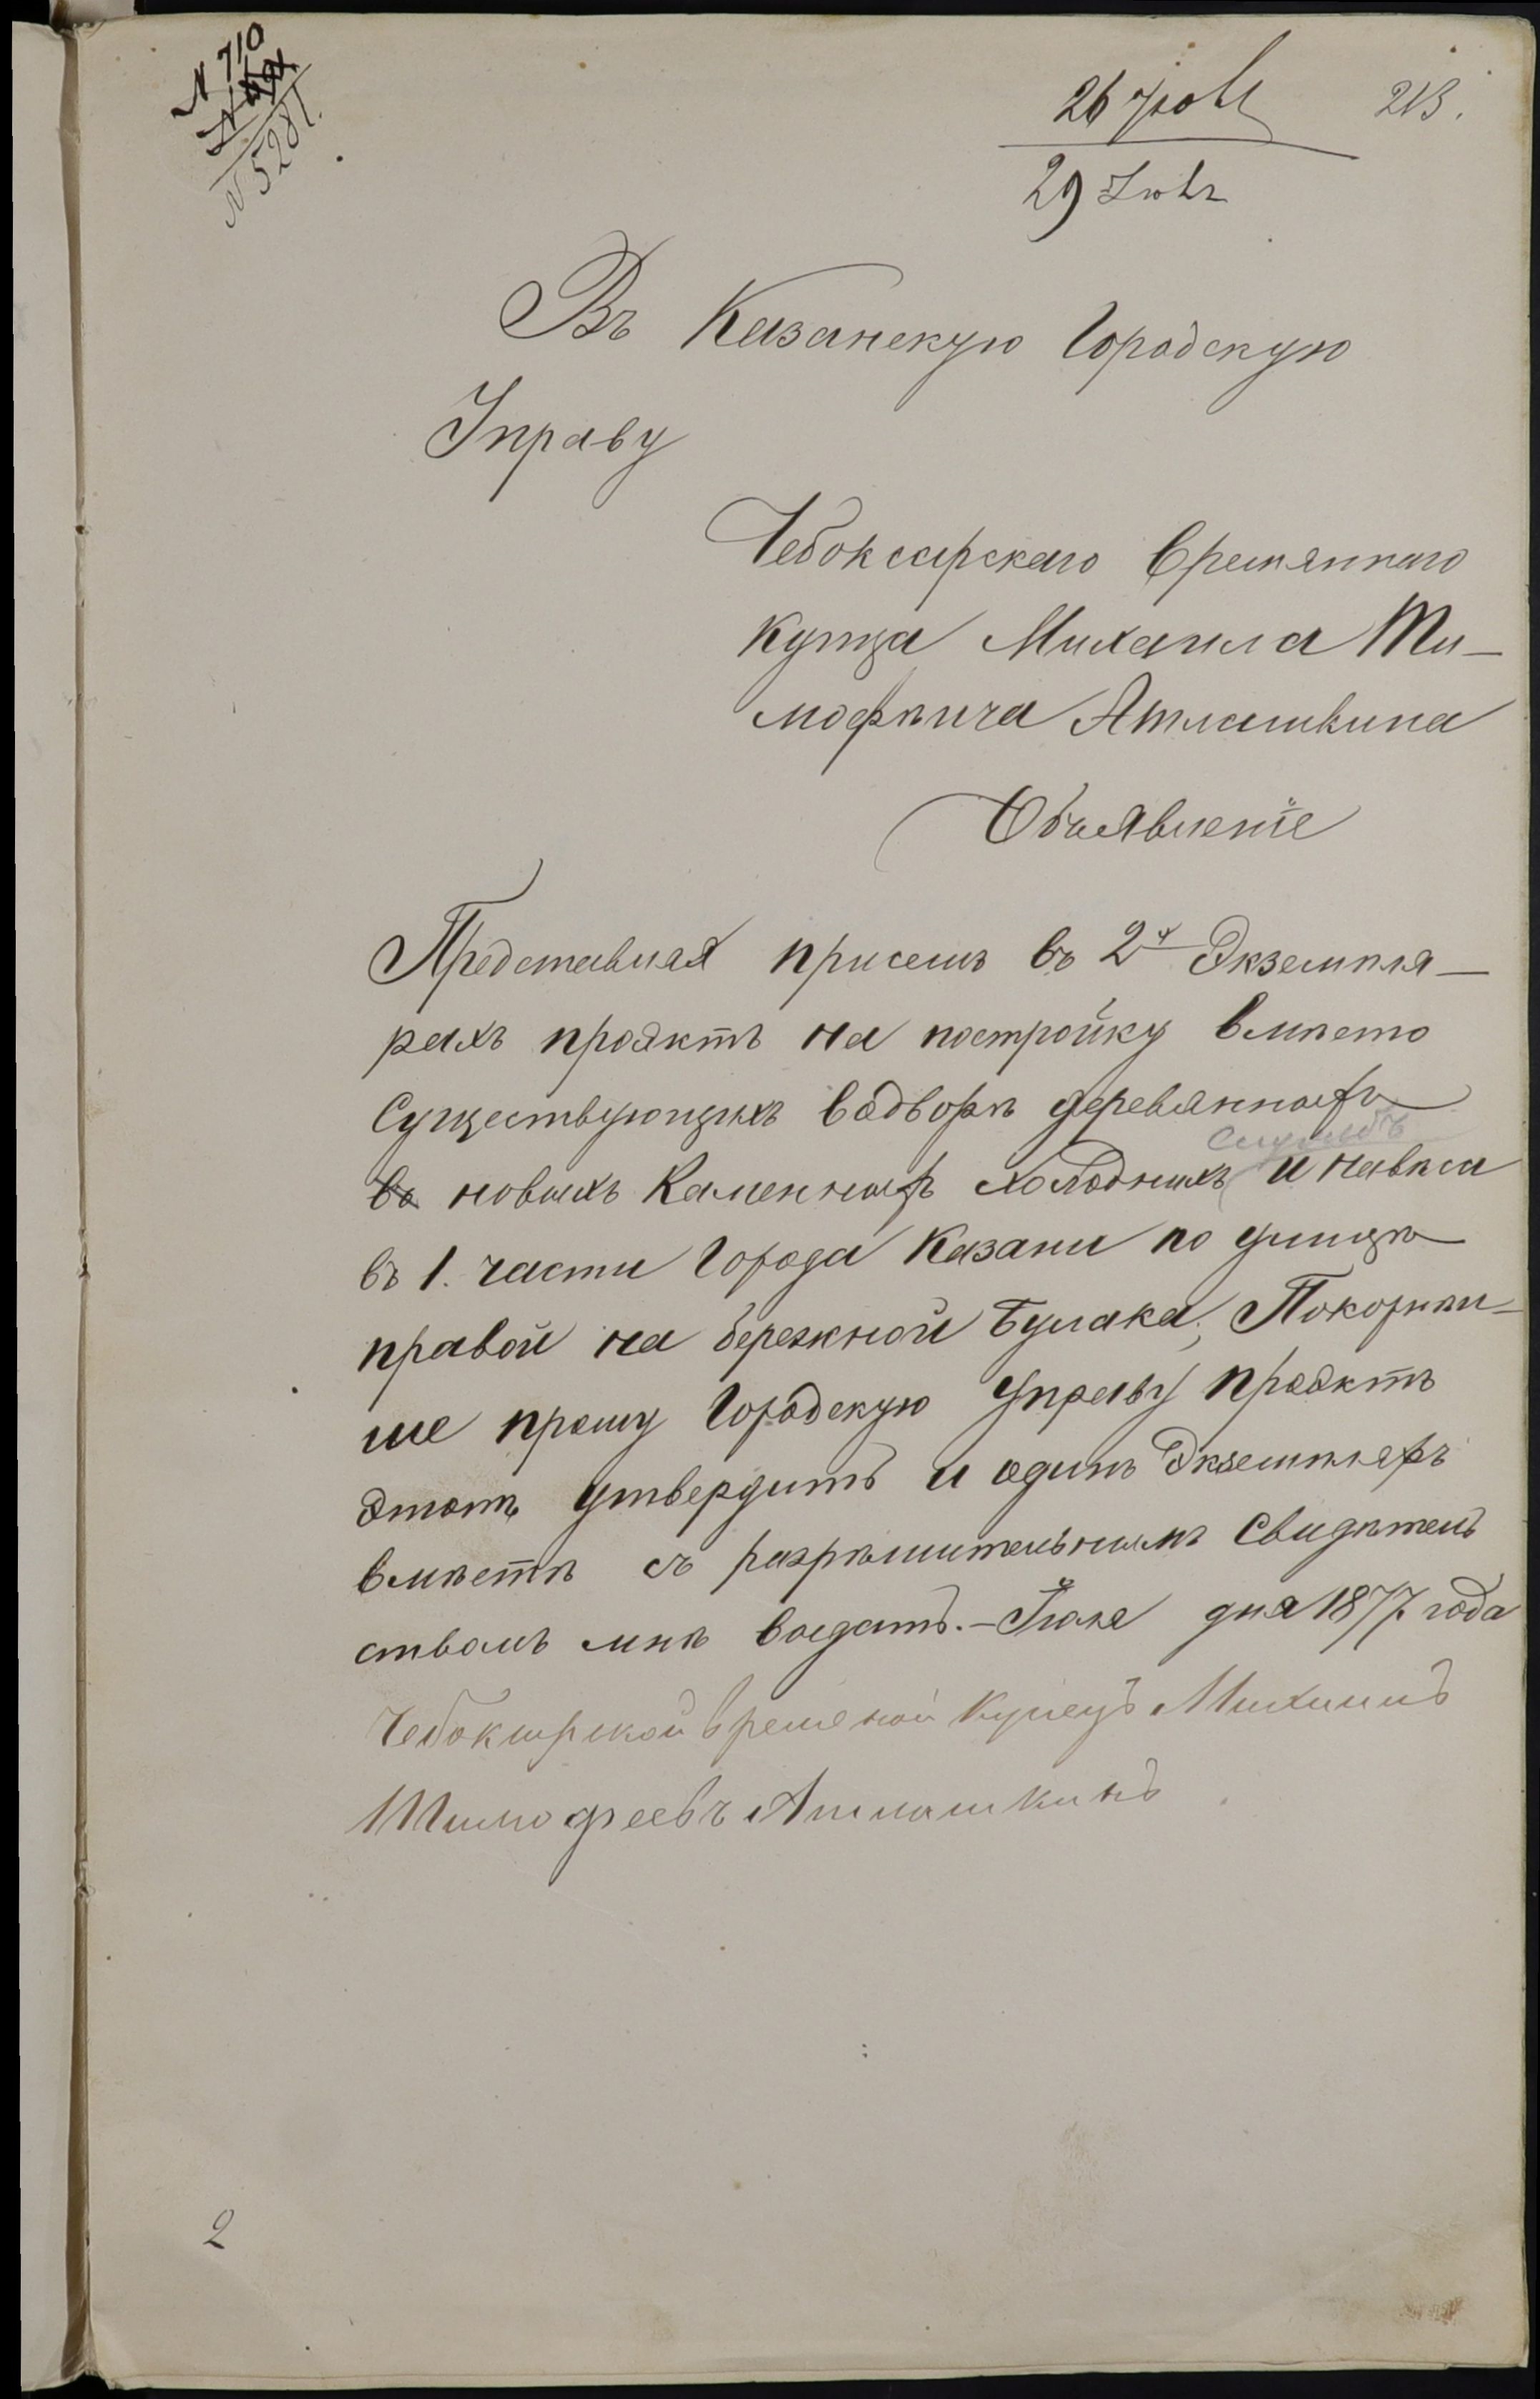 N 710
N 5281.
26 Іюль
213.
29 Іюль
Въ Казанскую Городскую
Управу
Чебоксарскаго Времяннаго
Купца Михаила Ти-
мофѣича Атлашкина
Объявленіе
Представляя присемъ въ 2х Экземпля-
рахъ проэктъ на постройку вмѣсто
Существующихъ водворѣ деревянныхъ
во новыхъ Каменныхъ холодныхъ и навѣса
Службъ
въ 1. части Города Казани по улицѣ
правой на бережной Булака, Покорнѣй-
ше прошу Городскую Управу проэктъ
этотъ утвердить и одинъ Экземпляръ
вмѣстѣ съ разрѣшительнымъ Свидѣтель
ствомъ мнѣ выдать.-Іюля дня 1877 года
Чебоксарской временой купецъ Михаилъ
Тимофеевъ Атлашкинъ
2